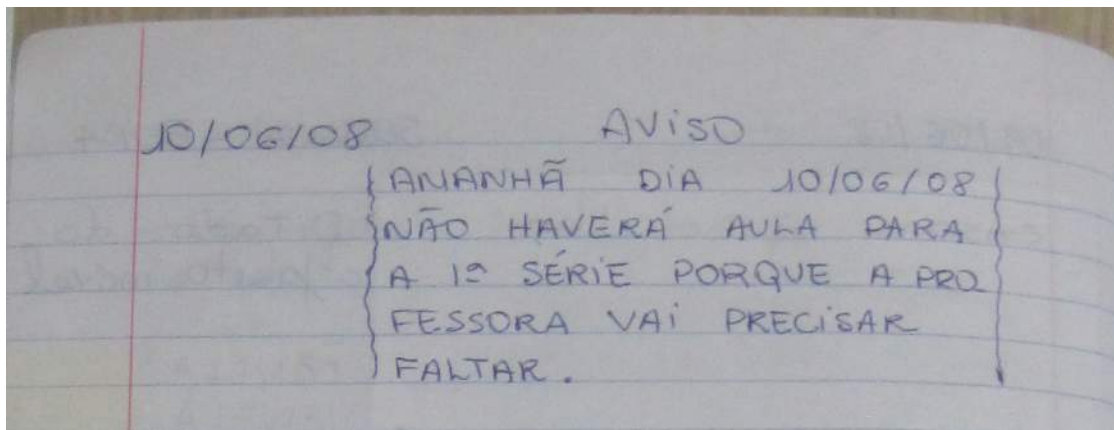 10/06/08 AVISO
AMANHÃ DIA 10/06/08
NÃO HAVERÁ AULA PARA
A 1ª SÉRIE PORQUE A PRO
FESSORA VAI PRECISAR
FALTAR.